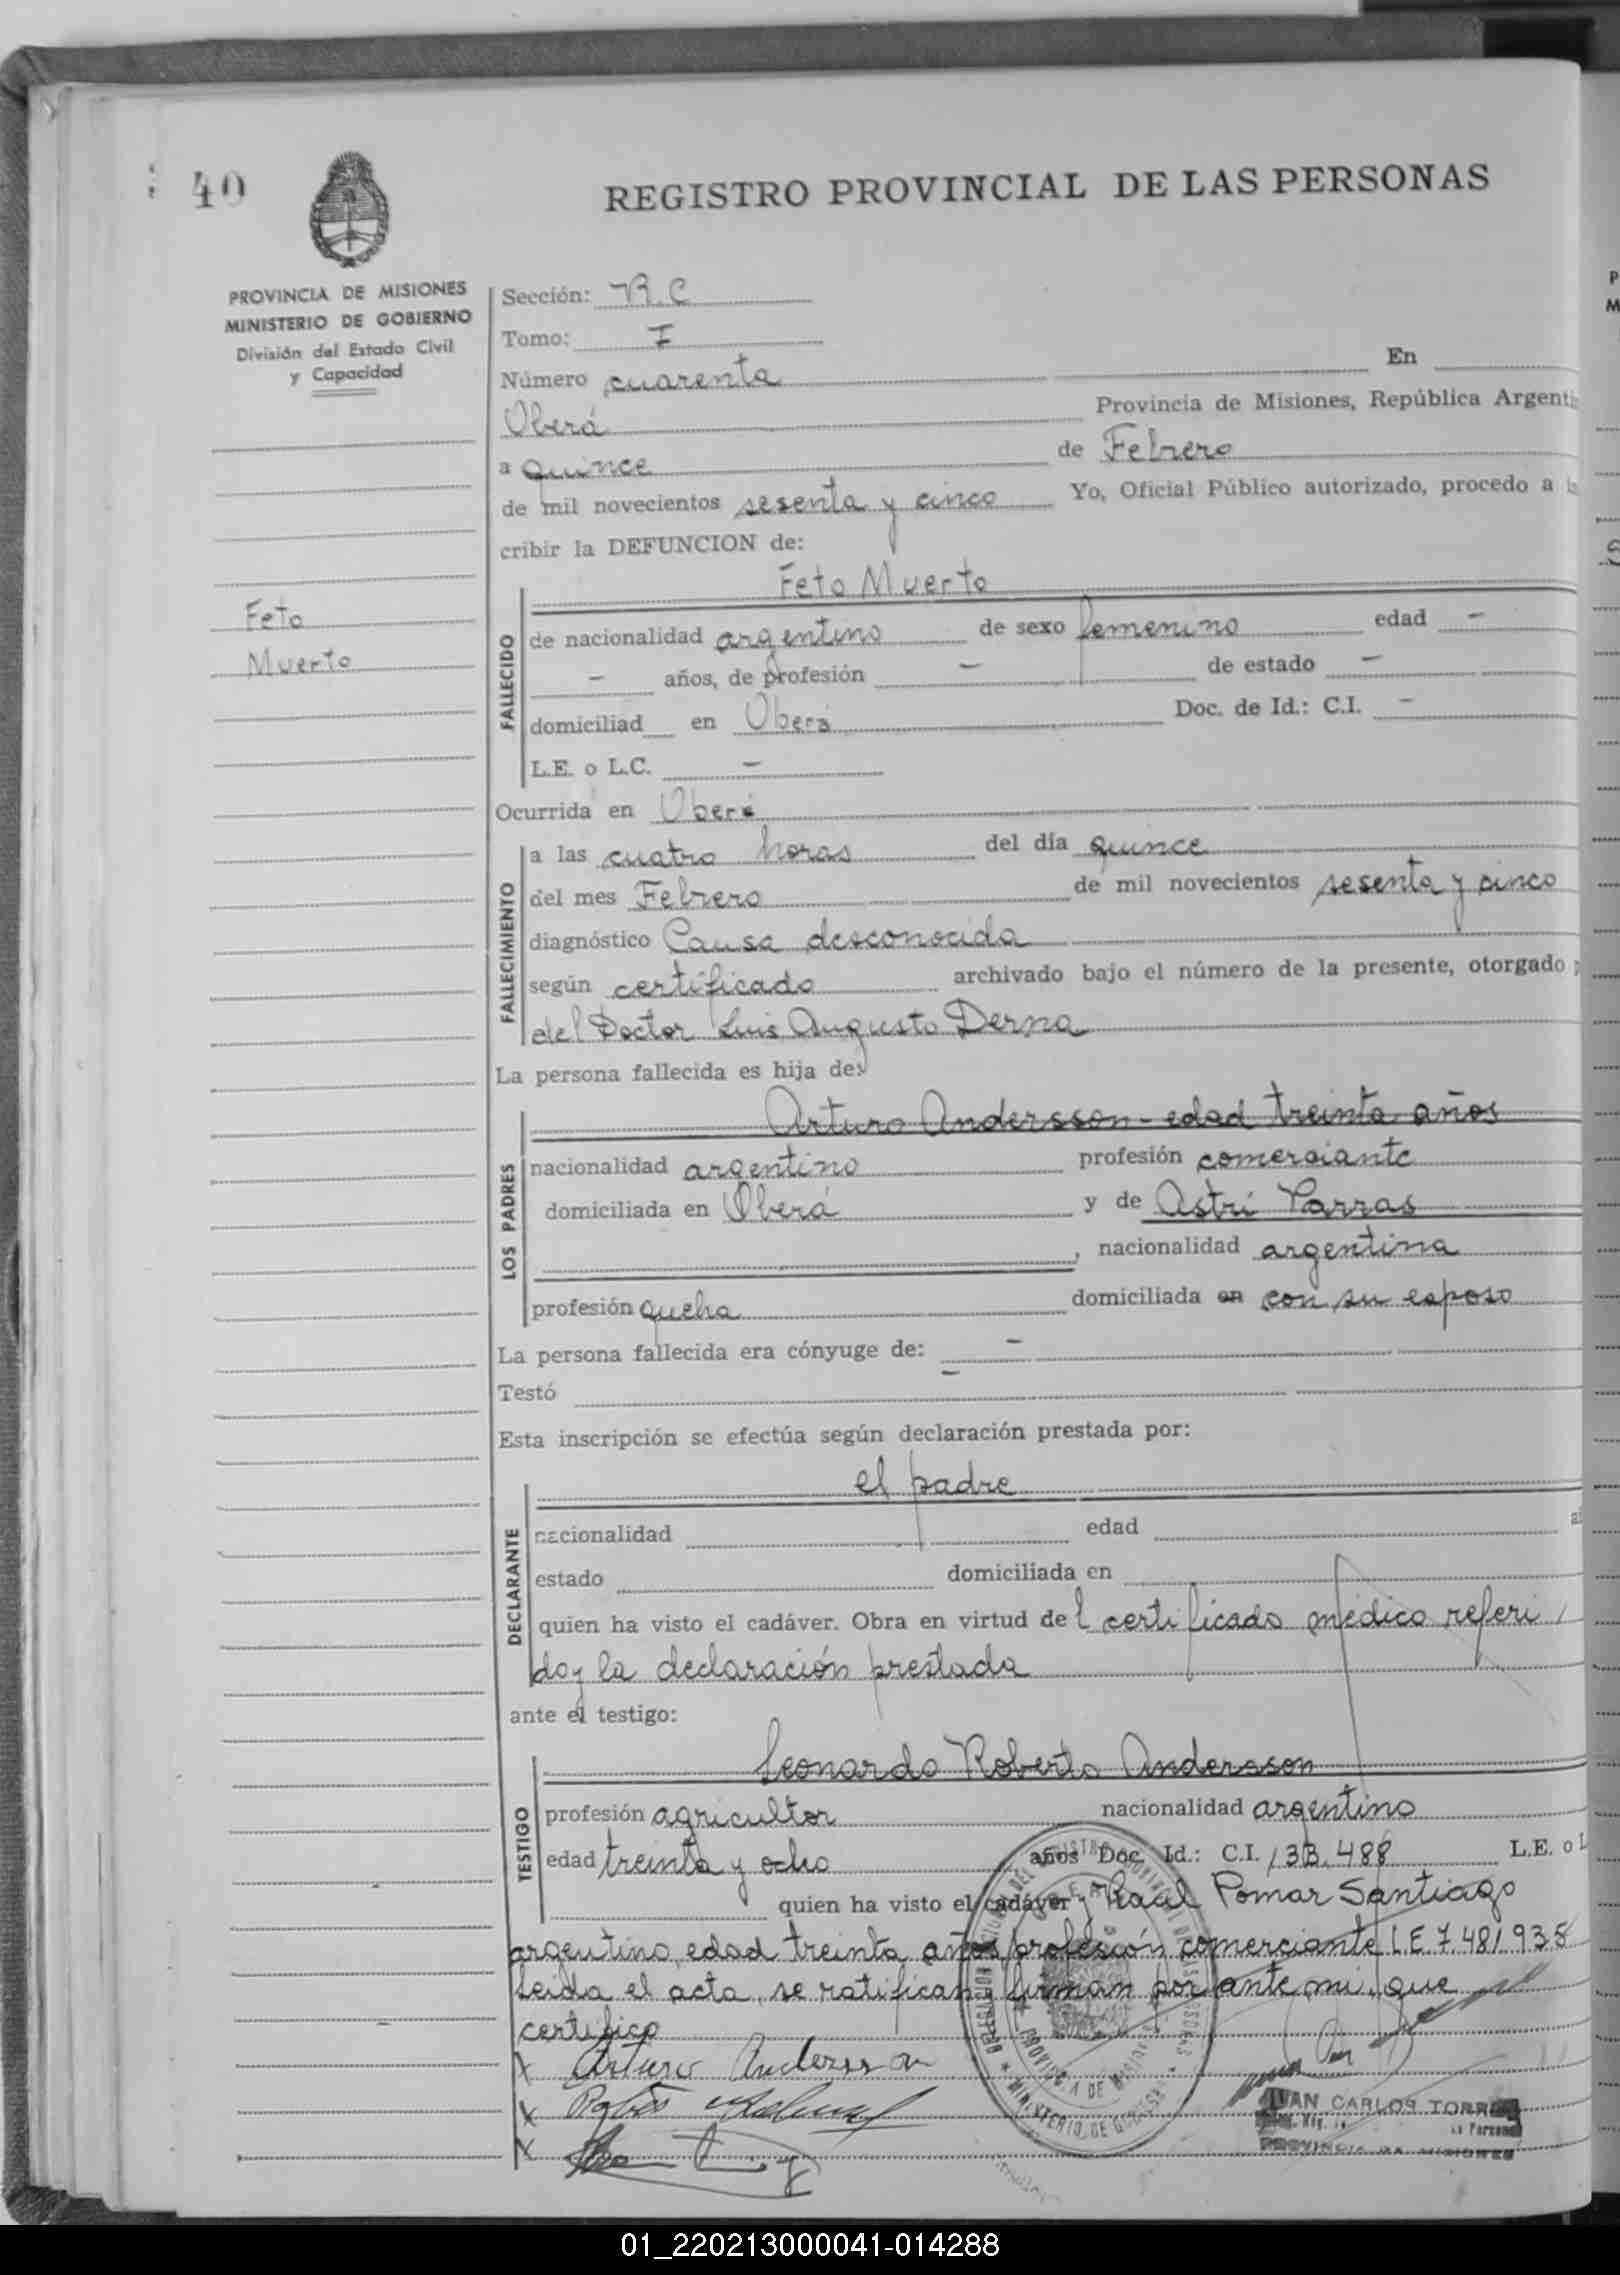 40
REGISTRO PROVINCIAL DE LAS PERSONAS
PROVINCIA DE MISIONES
MINISTERIO DE GOBIERNO
División del Estado Civil
y Capacidad
Sección: R.C
Tomo: I
Número cuarenta En
Oberá Provincia de Misiones, República Argenti
a quince de Febrero
de mil novecientos sesenta y cinco Yo, Oficial Público autorizado, procedo a
cribir la DEFUNCION de:
Feto
Muerto
FALLECIDO
Feto Muerto
de nacionalidad argentino de sexo femenino edad -
- años, de profesión - de estado -
domiciliad en Oberá Doc. de Id.: C.I. -
L.E. o L.C. -
Ocurrida en Oberá
FALLECIMIENTO
a las cuatro horas del día quince
del mes Febrero de mil novecientos sesenta y cinco
diagnóstico Causa desconocida
según certificado archivado bajo el número de la presente, otorgado
del Doctor Luis Augusto Derna
La persona fallecida es hija de:
LOS PADRES
Arturo Andersson - edad treinta años
nacionalidad argentino profesión comerciante
domiciliada en Oberá y de Astri
, nacionalidad argentina
profesión domiciliada en con su esposo
La persona fallecida era cónyuge de: -
Testó -
Esta inscripción se efectúa según declaración prestada por:
DECLARANTE
el padre
nacionalidad edad
estado domiciliada en
quien ha visto el cadáver. Obra en virtud del certificado médico referi
do y la declaración prestada
ante el testigo:
TESTIGO
Leonardo Roberto Andersson
profesión agricultor nacionalidad argentino
edad treinta y ocho años Doc. Id.: C.I. 133.488 L.E. o L
quien ha visto el cadáver y Raúl Pomar Santiago
argentino, edad treinta años profesión comerciante L E 7.481935
Leida el acta, se ratifican y firman por ante mi, que
certifico
x Arturo Andersson
x
x
JUAN CARLOS TORRES
PROVINCIA DE MISIONES
01_220213000041-014288